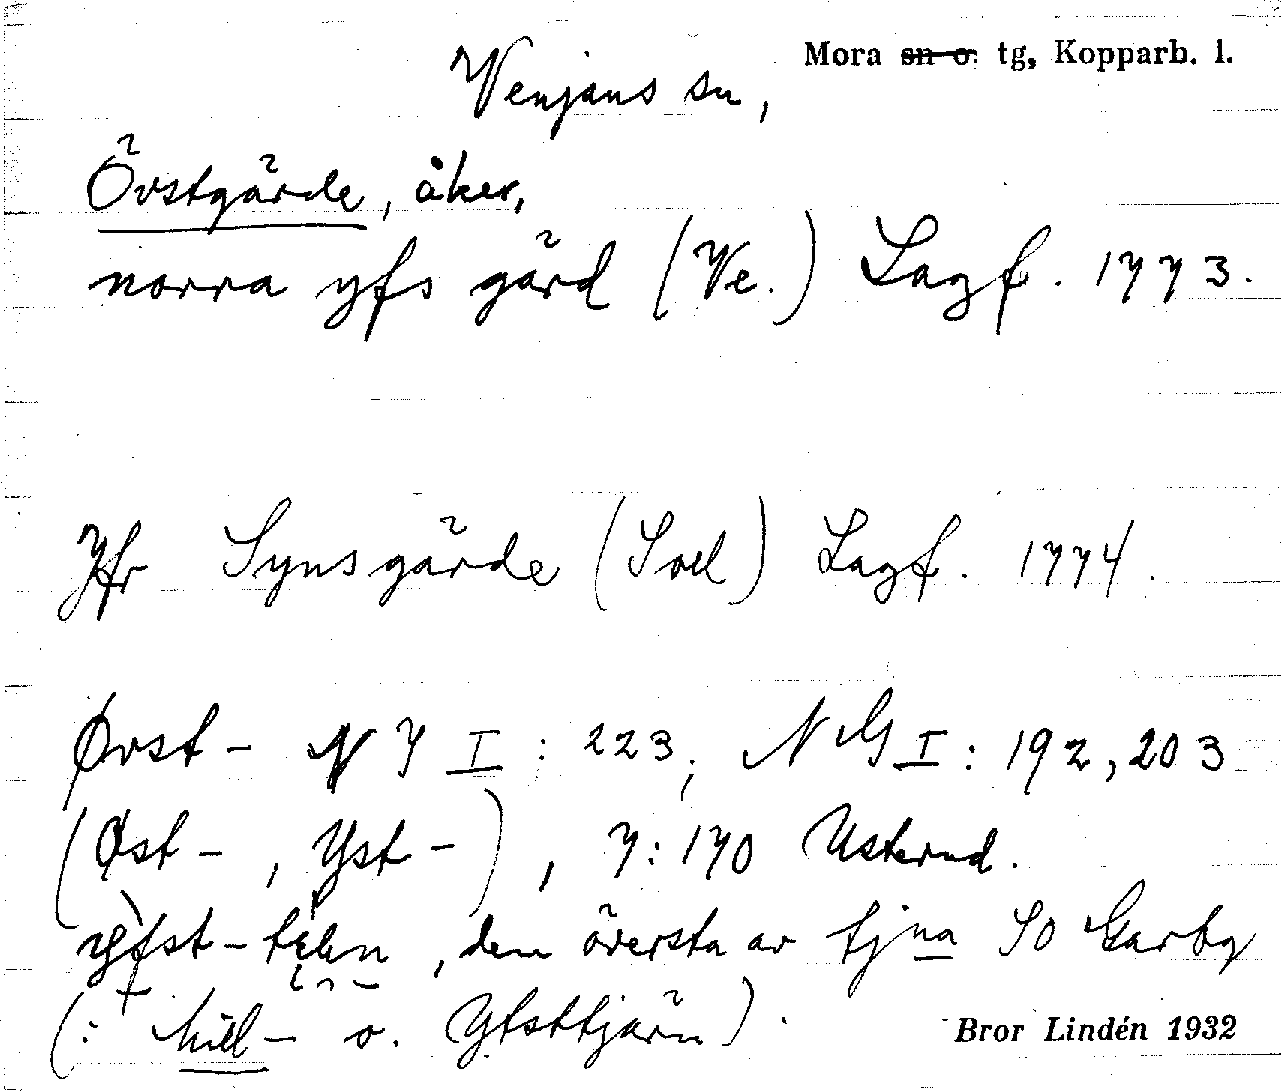 Mora sn o. tg, Kopparb. l.
Venjans sn,
Övstgärde, åker,
norra yfs gärd (Ve.) Lagf. 1773.
Jfr Synsgärde (Soll) Lagf. 1774.
Øvst- NG I: 223; NG I: 192, 203
(Øst-, Yst-), 7:170 Usterud.
, den översta av tjna SO Garby
(: - o. Yfsttjärn).
Bror Lindén 1932